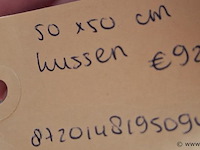 50 x 50 cm
kussen €92
8720148195094
© www.